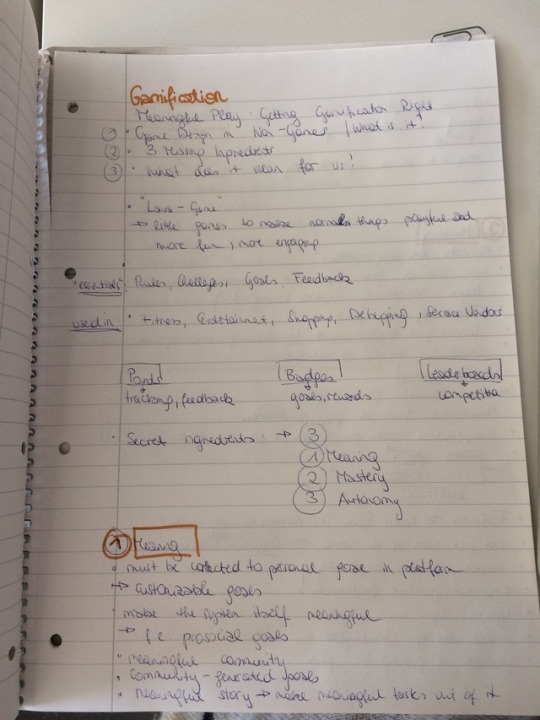 Gamification
Meaningful Play: Getting Gamification Right
① Game Design in Non-Games / What is it?
② • 3 Missing Ingredients
③ • What does it mean for us?
• "Lawn-Game"
→ little games to make normal things playful and
more fun, more engaging
"essentials": Rules, Challenges, Goals, Feedback
used in: • Fitness, Entertainment, Shopping, Debugging, Service Vendors
Points Badges Leaderboards
tracking, feedback goals, rewards competition
• Secret ingredients: → ③
① Meaning
② Mastery
③ Autonomy
① Meaning
• must be connected to personal goals in platform
→ customizable goals
• make the system itself meaningful
→ f.e. prosocial goals
• meaningful community
• community-generated goals
• meaningful story → make meaningful tasks out of it